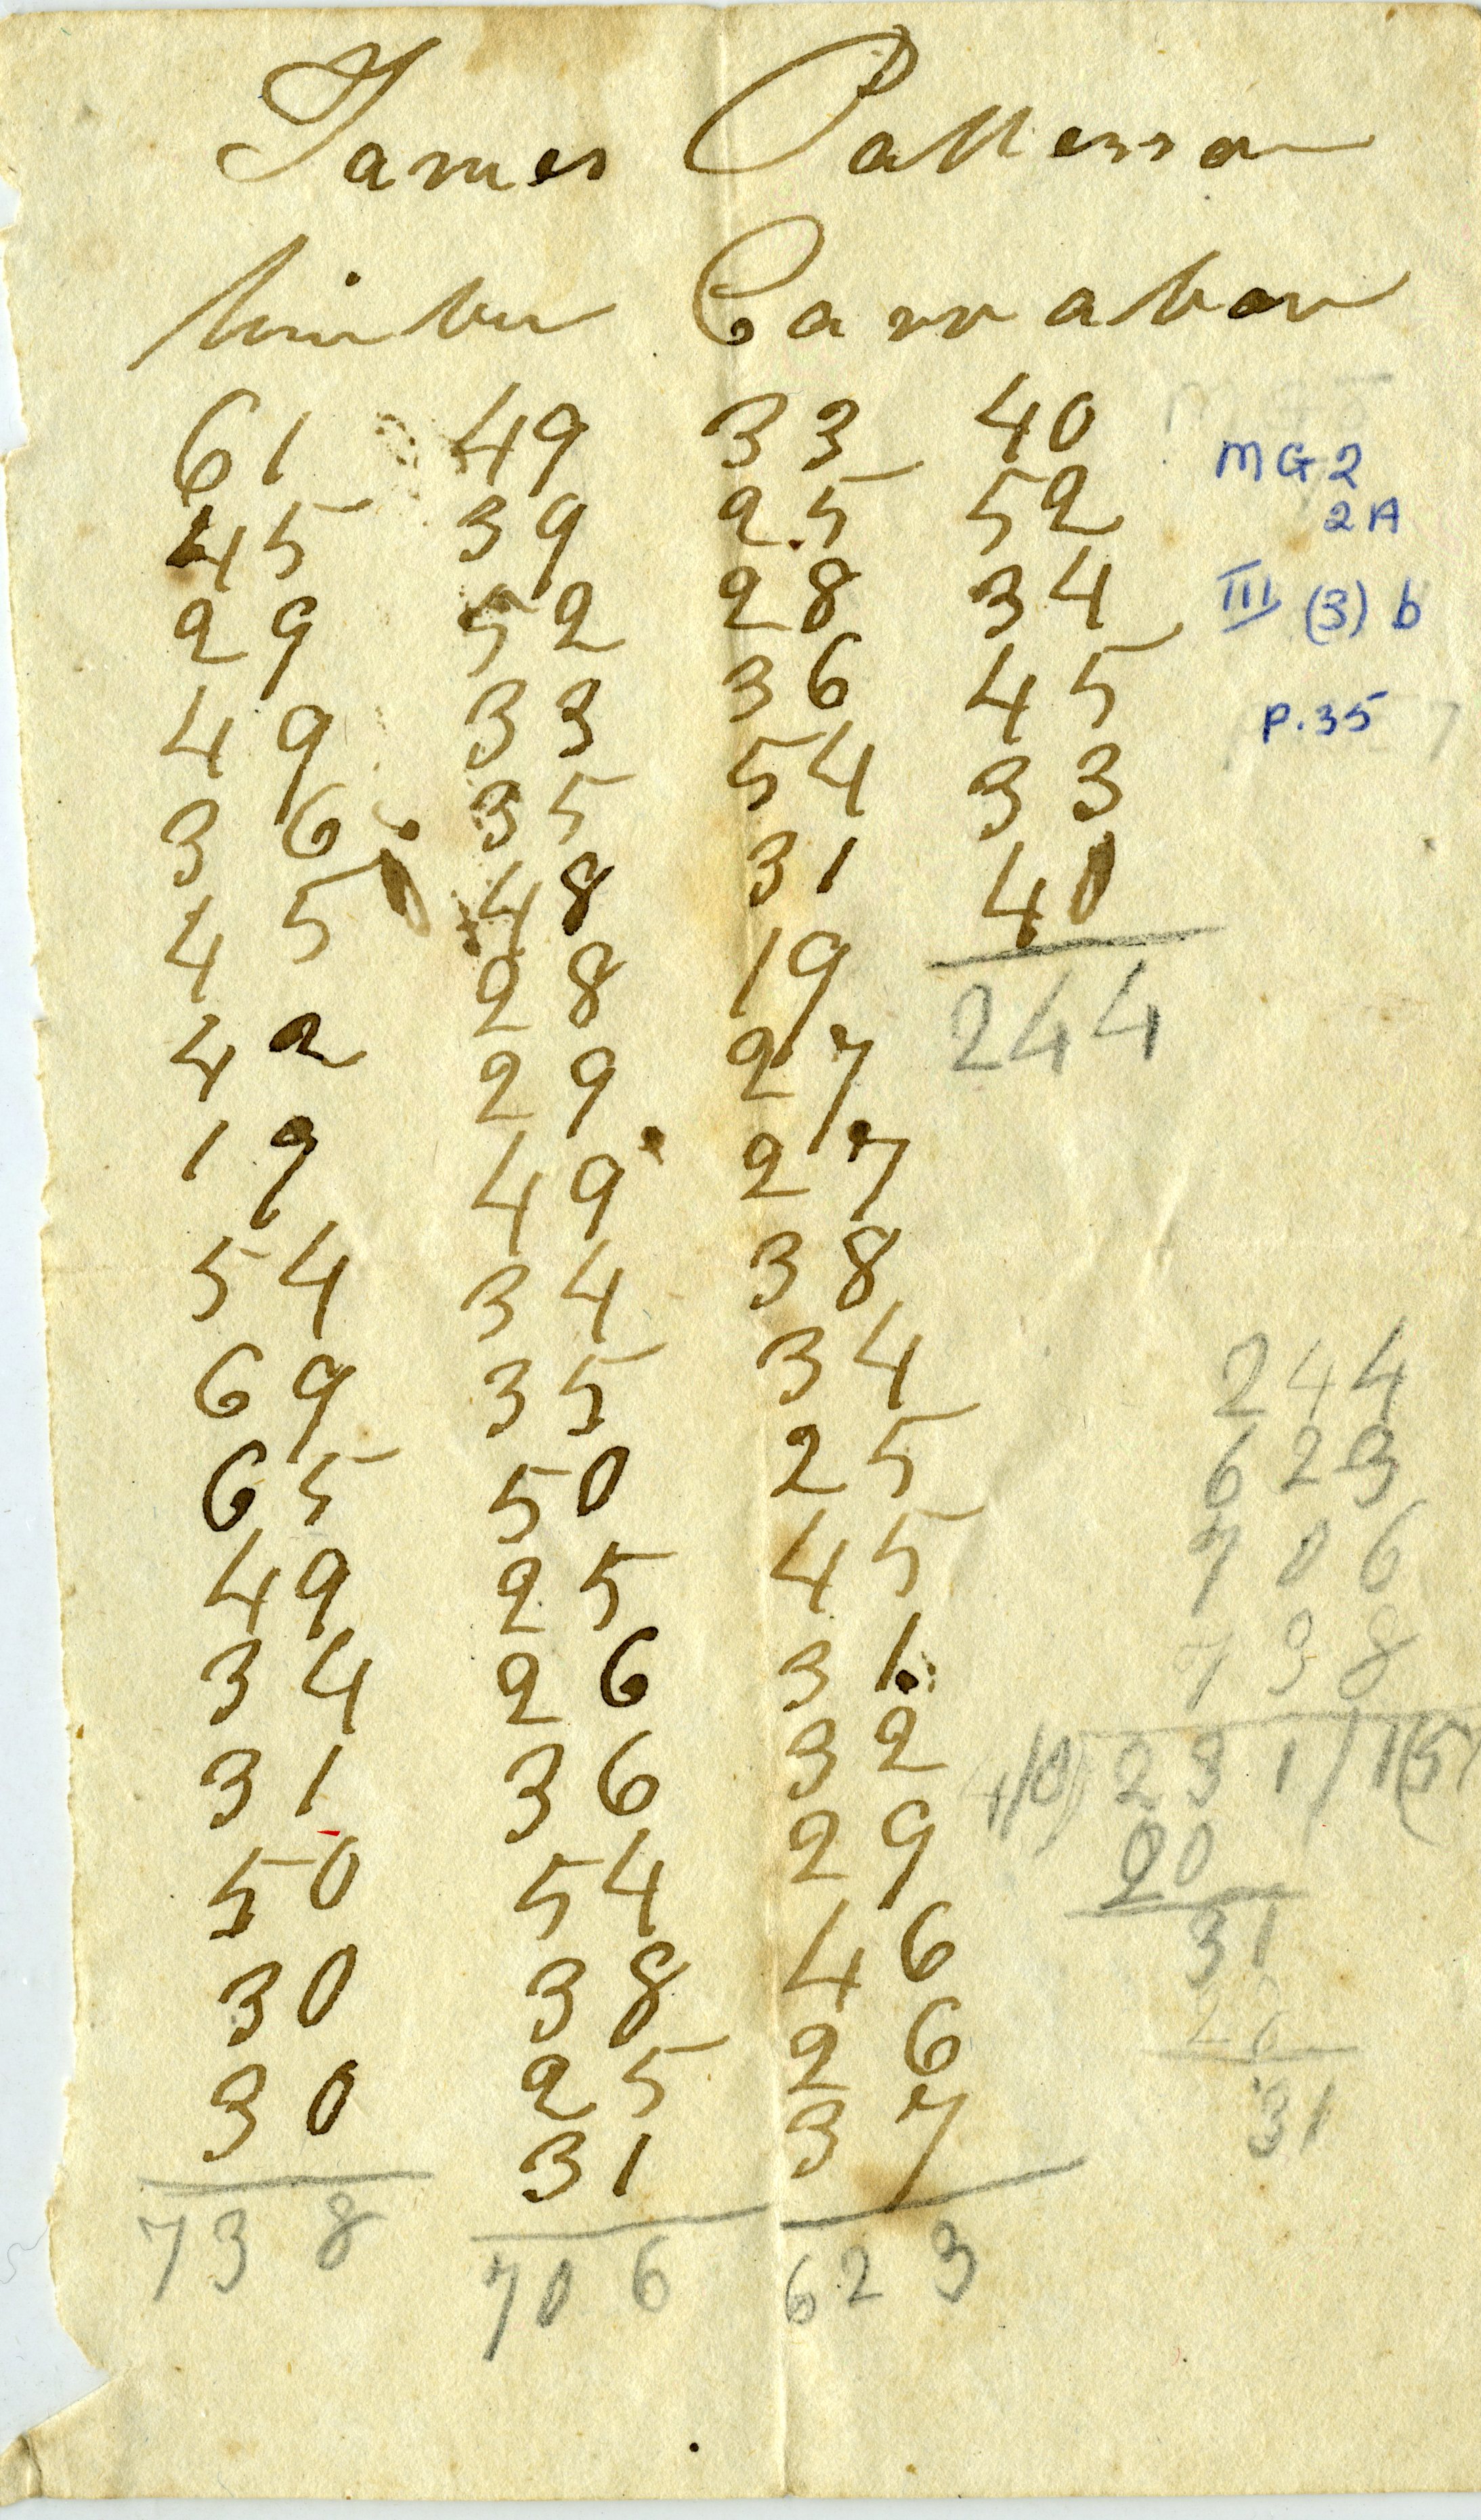 James Patterson
timber
61 49 33 40 MG2
45 39 25 52 2A
29 52 28 34 III (3) b
49 33 36 45 P.35
36 35 54 33
45 48 31 40
42 28 19 244
19 29 27
54 49 27
69 34 38
65 35 34 244
49 50 25 623
34 25 45 706
31 26 31 738
50 36 32 4/0) 231/1(57
30 54 29 20
30 38 46 31
738 25 26
31 37 31
706 623